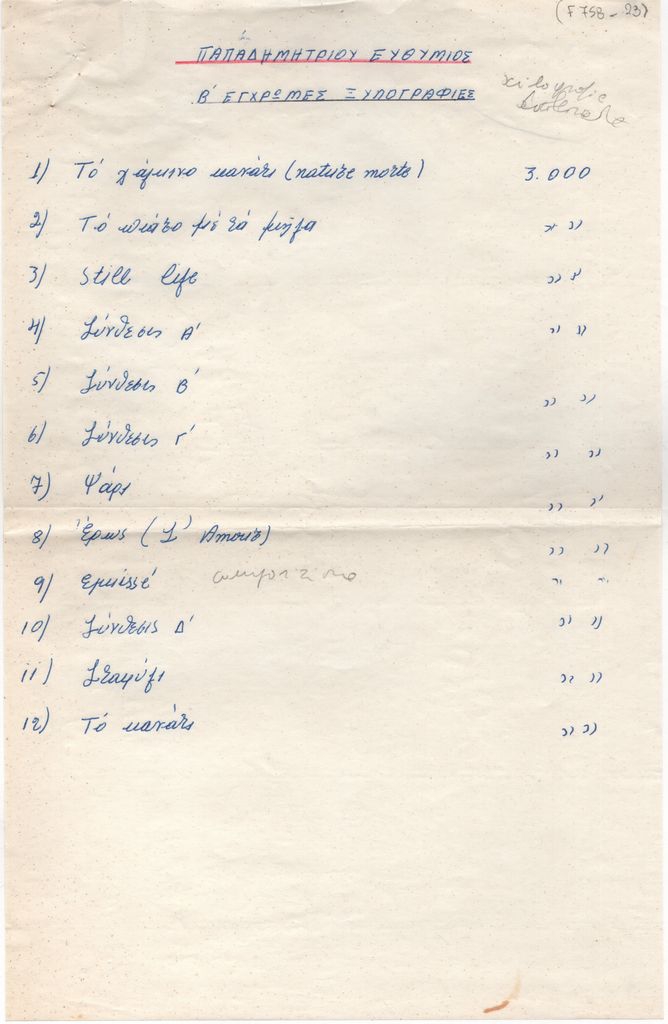 (F 758 - 23)
ΠΑΠΑΔΗΜΗΤΡΙΟΥ ΕΥΘΥΜΙΟΣ
Β' ΕΓΧΡΩΜΕΣ ΞΥΛΟΓΡΑΦΙΕΣ
1) Τό γάμινο κανάτι (nature morte) 3.000
2) Τό πιάτο μέ τά μήλα " "
3) Still life " "
4) Σύνθεσις Α' " "
5) Σύνθεσις Β' " "
6) Σύνθεσις Γ' " "
7) Ψάρι " "
8) Έρως (L' Amour) " "
9) " "
10) Σύνθεσις Δ' " "
11) Σταφύλι " "
12) Τό κανάτι " "